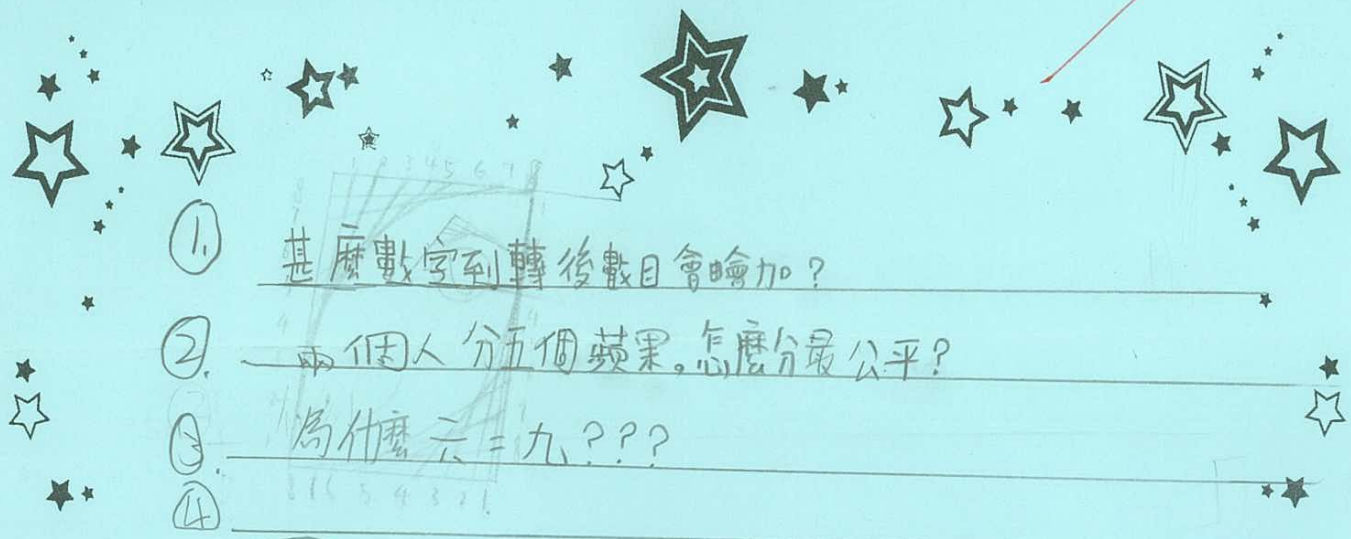 ① 甚麼數字到轉後數目會增加?
② 兩個人分五個蘋果。怎麼分最公平?
③. 為什麼六=九???
④